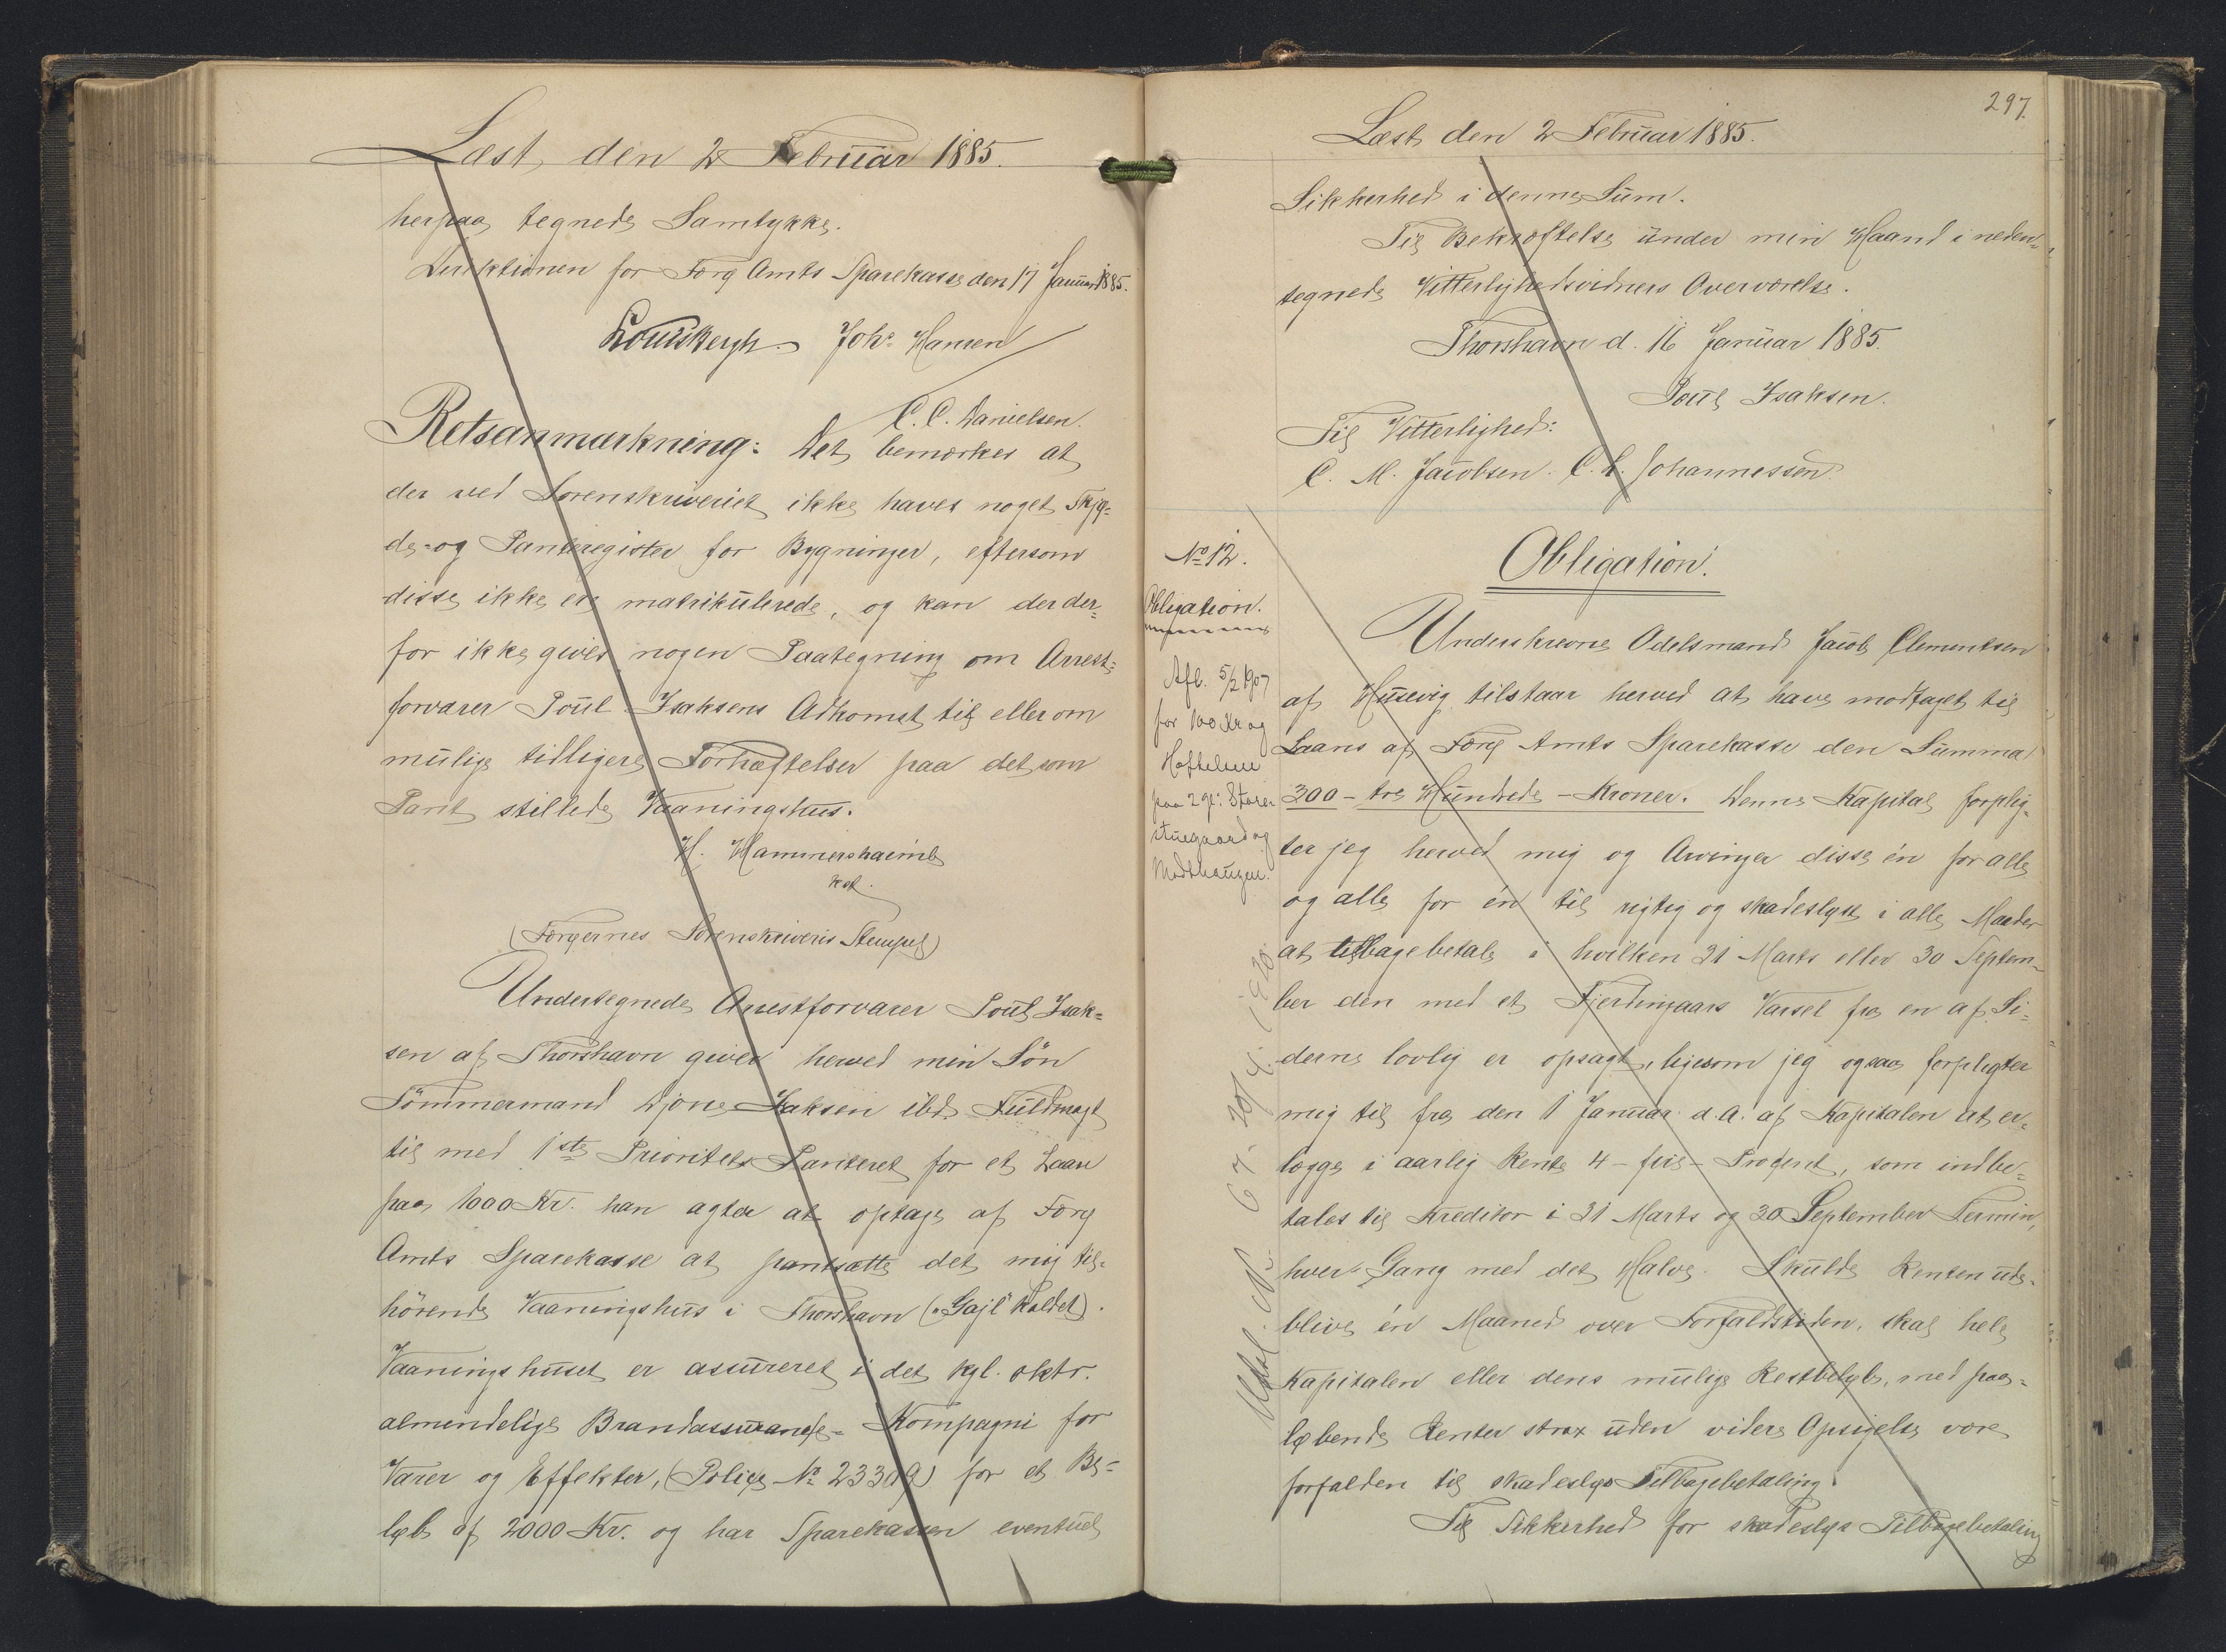 Læst, den 2 Februar 1885.
herpaa tegnede Samtykke.
Direktionen for Færø Amts Sparekasse den 17 Januar 1885.
Louis Bergh. Johs. Hansen
C. C. Danielsen.
Retsanmærkning: Det bemærkes at
der ved Sorenskriveriet ikke haves noget Skjø-
de- og Panteregister for Bygninger, eftersom
disse ikke ere matrikulerede, og kan der der-
for ikke gives nogen Paategning om Arrest-
forvarer Poul Isaksens Adkomst til eller om
mulige tidligere Forhæftelser paa det som
Pant stillede Vaaningshus.
H. Hammershaimb
kst.
(Færøernes Sorenskriveris Stempel)
Undertegnede Arrestforvarer Poul Isak-
sen af Thorshavn giver herved min Søn
Tømmermand Djone Isaksen ibd. Fuldmagt
til med 1ste Prioritets Panteret for et Laan
paa 1000 Kr. han agter at optage af Færø
Amts Sparekasse at pantsætte det mig til-
hørende Vaaningshus i Thorshavn („Gajl" kaldet).
Vaaningshuset er assureret i det kgl. oktr.
almindelige Brandassurance-Kompagni for
Varer og Effekter, (Police № 23309) for et Be-
løb af 2000 Kr. og har Sparekassen eventuel
297.
Læst den 2 Februar 1885.
Sikkerhed i denne Sum.
Til Bekræftelse under min Haand i neden-
tegnede Vitterlighedsvidners Overværelse.
Thorshavn d. 16 Januar 1885.
Poul Isaksen.
Til Vitterlighed:
C. M. Jacobsen. C. L. Johannessen.
№ 12.
Obligation.
Afl. 5/2 1907
for 100 Kr og
Hæftelsen
paa 2 gl.
Obligation.
Underskrevne Odelsmand Jacob Clementsen
af Husevig tilstaar herved at have modtaget til
Laans af Færø Amts Sparekasse den Summa
300 - tre Hundrede - Kroner. Denne Kapital forplig-
ter jeg herved mig og Arvinger disse én for alle
og alle for én til rigtig og skadesløst i alle Maader
at tilbagebetale i hvilken 31 Marts eller 30 Septem-
ber den med et Fjerdingaars Varsel fra en af Si-
derne lovlig er opsagt, ligesom jeg ogsaa forpligter
mig til fra den 1 Januar d. A. af Kapitalen at er-
lægge i aarlig Rente 4 - fire - Procent, som indbe-
tales til Kreditor i 31 Marts og 30 September Termin,
hver Gang med det Halve. Skulde Renten ude-
blive én Maaned over Forfaldstiden, skal hele
Kapitalen eller dens mulige Restbeløb, med paa-
løbende Renter strax uden videre Opsigelse være
forfalden til skadesløs Tilbagebetaling.
Til Sikkerhed for skadesløs Tilbagebetaling